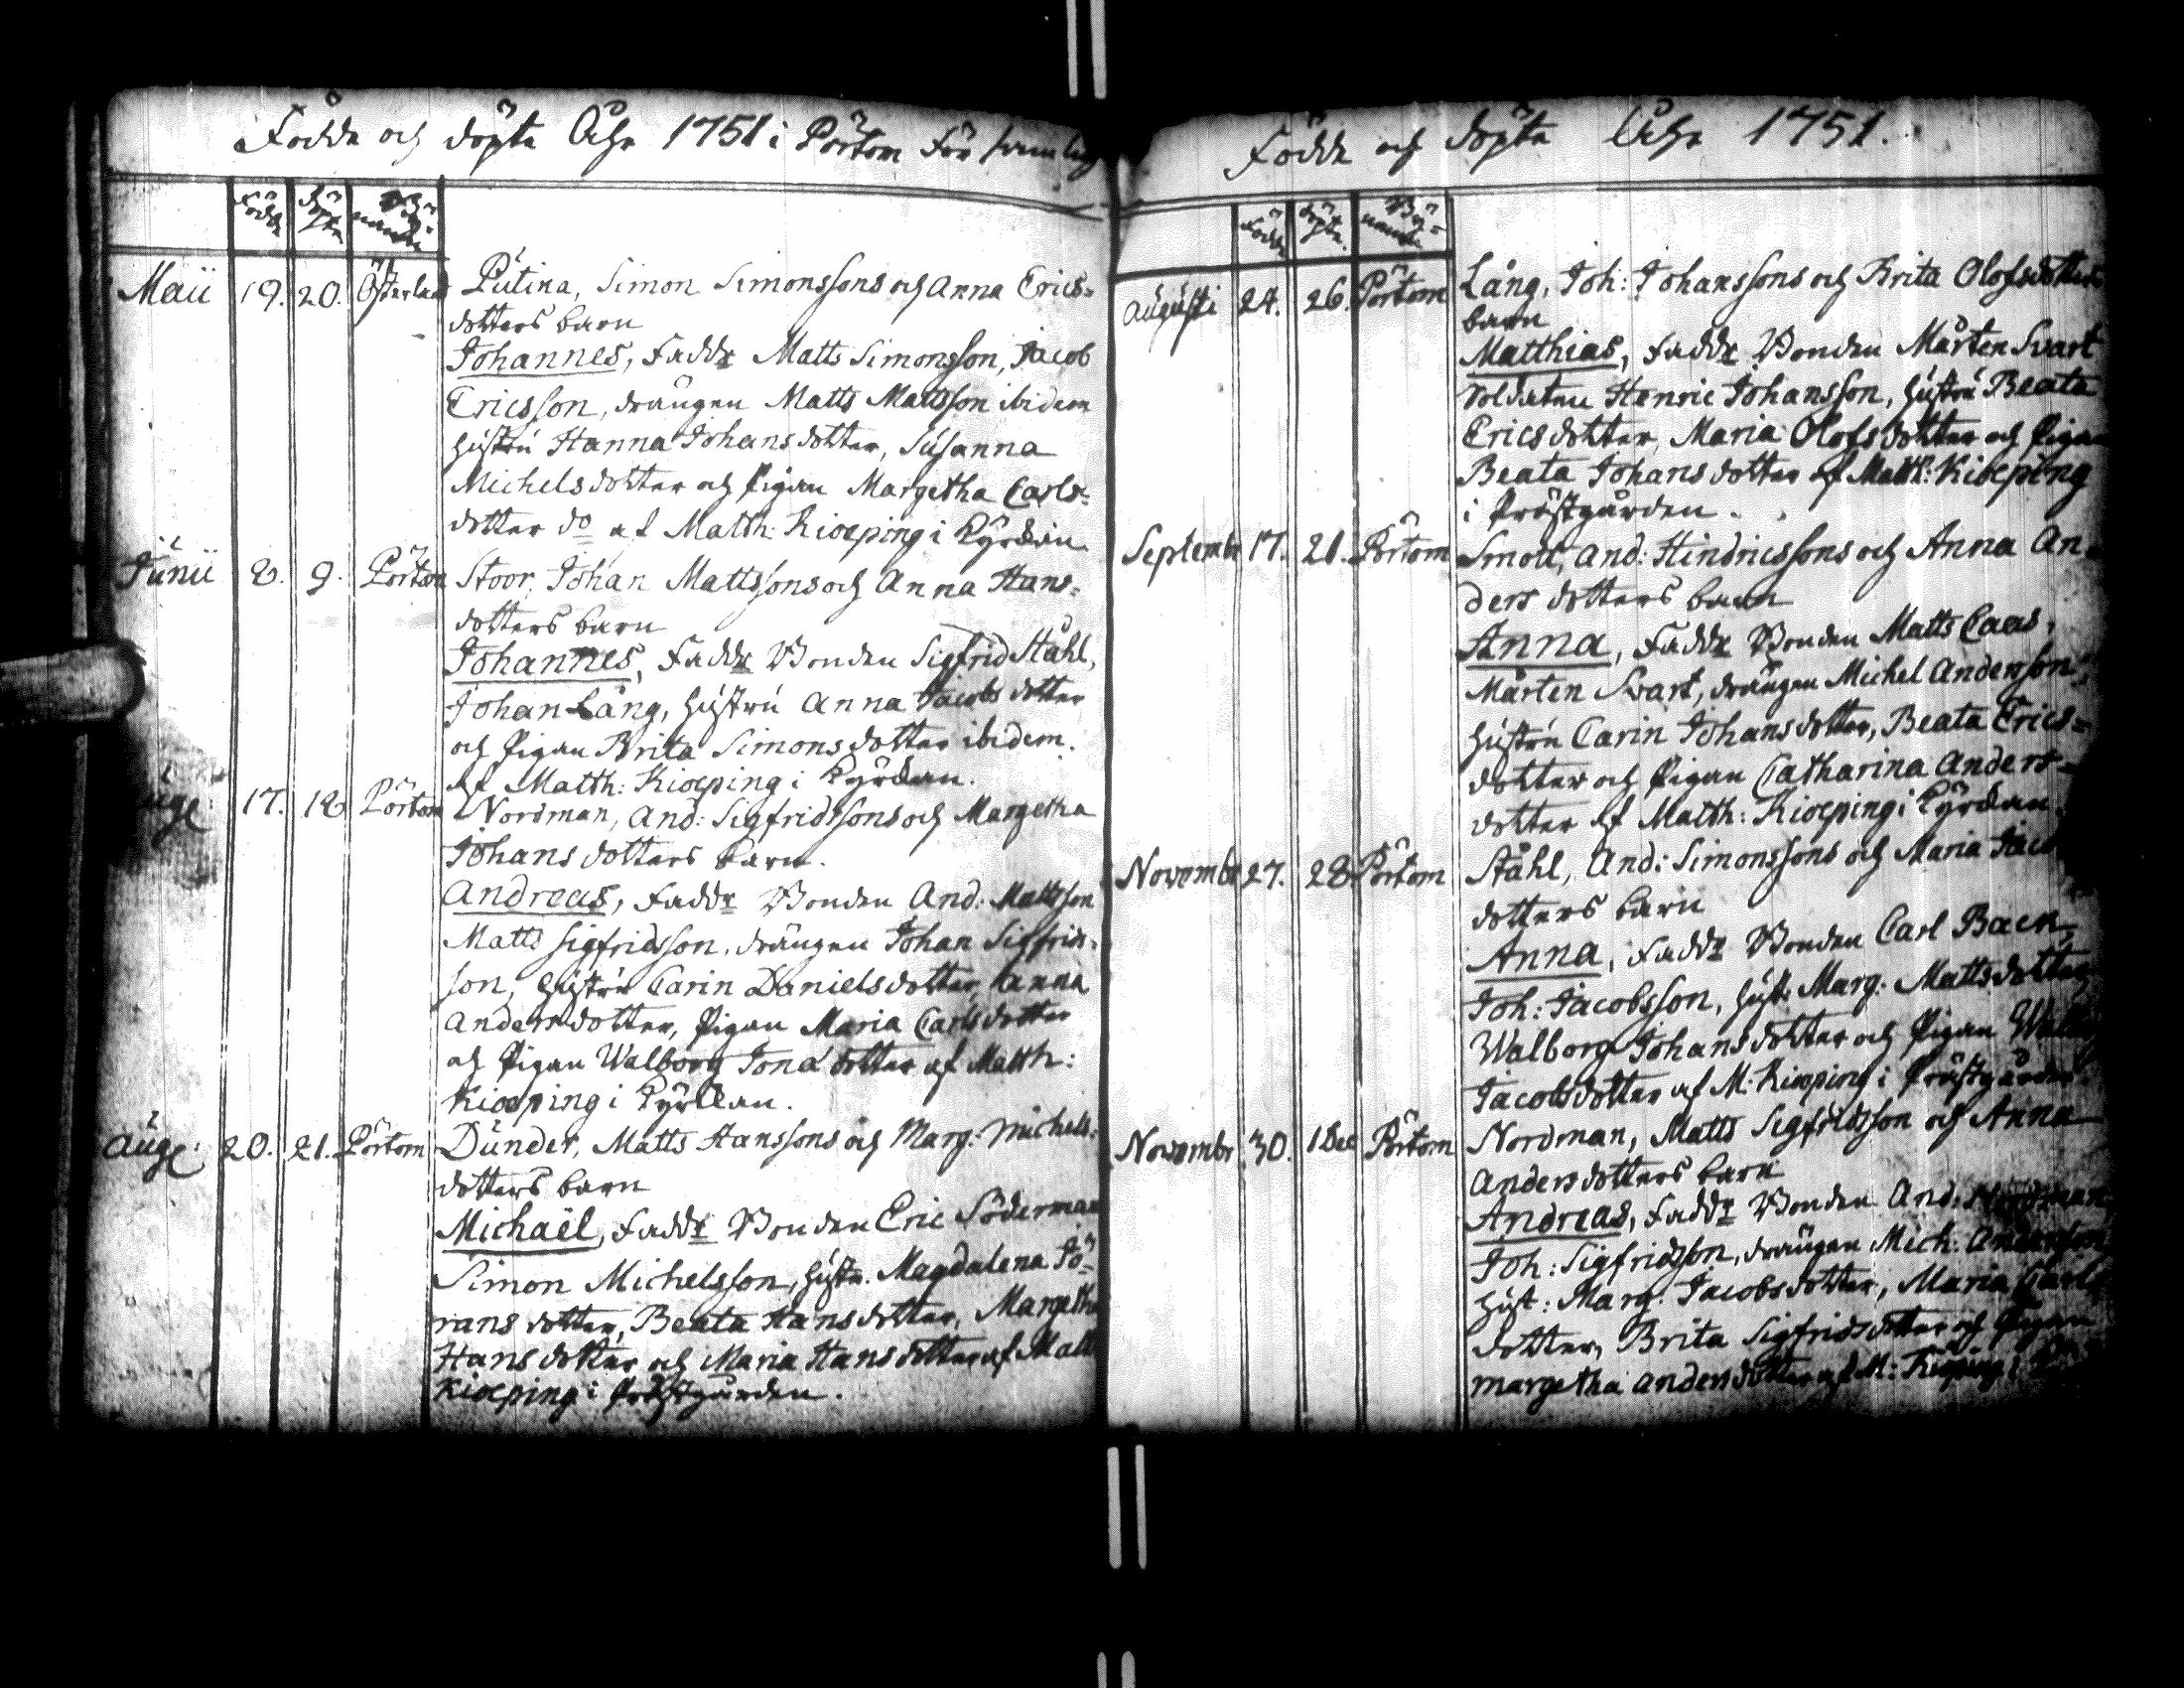 Födde och döpte Åhr 1751 i Pörtom Församling
Födde döpte Bÿ-
namn
Maii 19. 20. Österland Pútina, Simon Simonssons och Anna Erics=
dotters barn
Johannes, Faddr Matts Simonsson, Jacob
Ericsson, drängen Matts Mattsson ibidem
hústrú Hanna Johans dotter, Súsanna
Michels dotter och Pigan Margetha Carls=
dotter do af Matth: Kioeping i Kÿrkan
Júnii 8. 9. Pörtom Stoor, Johan Mattssons och Anna Hans=
dotters barn
Johannes, Faddr Bonden Sigfrid Ståhl,
Johan Lång, hústrú Anna Jacobs dotter
och Pigan Brita Simons dotter ibidem.
af Matth: Kioeping i Kÿrkan.
17. 18 Pörtom Nordman, And: Sigfridssons och Margetha
Johans dotters barn.
Andreas, Faddr Bonden And: Mattsson
Matts Sigfridsson, drängen Johan Sigfrids=
son, hústrú Carin Daniels dotter, Anna
Anders dotter, Pigan Maria Carls dotter
och Pigan Walborg Jona dotter af Matth:
Kioeping i Kÿrkan.
Aúg: 20. 21. Pörtom Dúnder, Matts Hanssons och Marg: Michels=
dotters barn
Michaël, Faddr Bonden Eric Söderman
Simon Michelsson, hústr. Magdalena Jö=
rans dotter, Beata Hans dotter, Margetha
Hans dotter och Maria Hans dotter af Matth
Kioeping i Prästgården.
Födde och döpte Åhr 1751.
Födde döpte Bÿ=
namn
Aúgústi 24. 26. Pörtom Lång, Joh: Johanssons och Brita Olofsdotters
barn
Matthias, Faddr Bonden Mårten Svart
Soldaten Henric Johansson, hústrú Beata
Erics dotter, Maria Olofs dotter och Pigan
Beata Johans dotter af Matth: Kioeping
i Prästgården.
Septembr 17. 21. Pörtom And: Hindricssons och Anna An=
ders dotters barn
Anna, Faddr Bonden Matts Caas,
Mårten Svart, drängen Michel Andersson,
hústrú Carin Johans dotter, Beata Erics=
dotter och Pigan Catharina Anders=
dotter af Matth: Kioeping i Kÿrkan.
Novembr 27. 28 Pörtom Ståhl, And: Simonssons och Maria Jacobs
dotters barn
Anna, Faddr Bonden Carl Back,
Joh: Jacobsson, húst: Marg: Matts dotter,
Walborg Johans dotter och Pigan
Jacobs dotter af M: Kioeping i Prästgården
Novembr 30. 1 Dec Pörtom Nordman, Matts Sigfridsson och Anna
Anders dotters barn
Andreas, Faddr Bonden And: Nordman
Joh: Sigfridsson, drängen Mich: Andersson
húst: Marg: Jacobs dotter, Maria Carls
dotter, Brita Sigfrids dotter och Pigan
Margetha Anders dotter af M: Kioping i